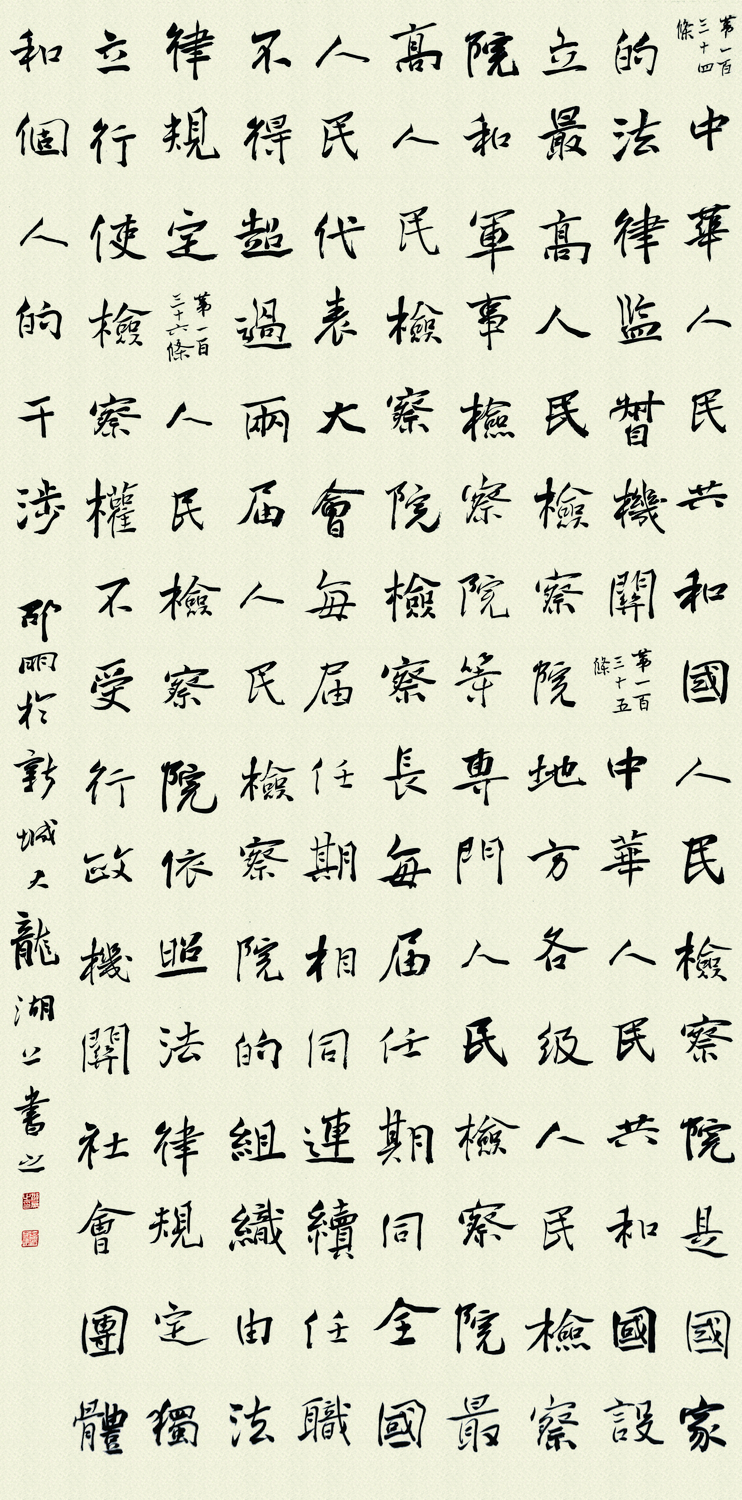 第一百三十四條中華人民共和國人民檢察院是國家
的法律監督機關第一百三十五條中華人民共和國設
立最高人民檢察院地方各級人民檢察
院和軍事檢察院等專門人民檢察院最
高人民檢察院檢察長每届任期同全國
人民代表大會每届任期相同連續任職
不得超過兩届人民檢察院的組織由法
律規定第一百三十六條人民檢察院依照法律規定獨
立行使檢察權不受行政機關社會團體
和個人的干涉 邵明於新城大龍湖書之